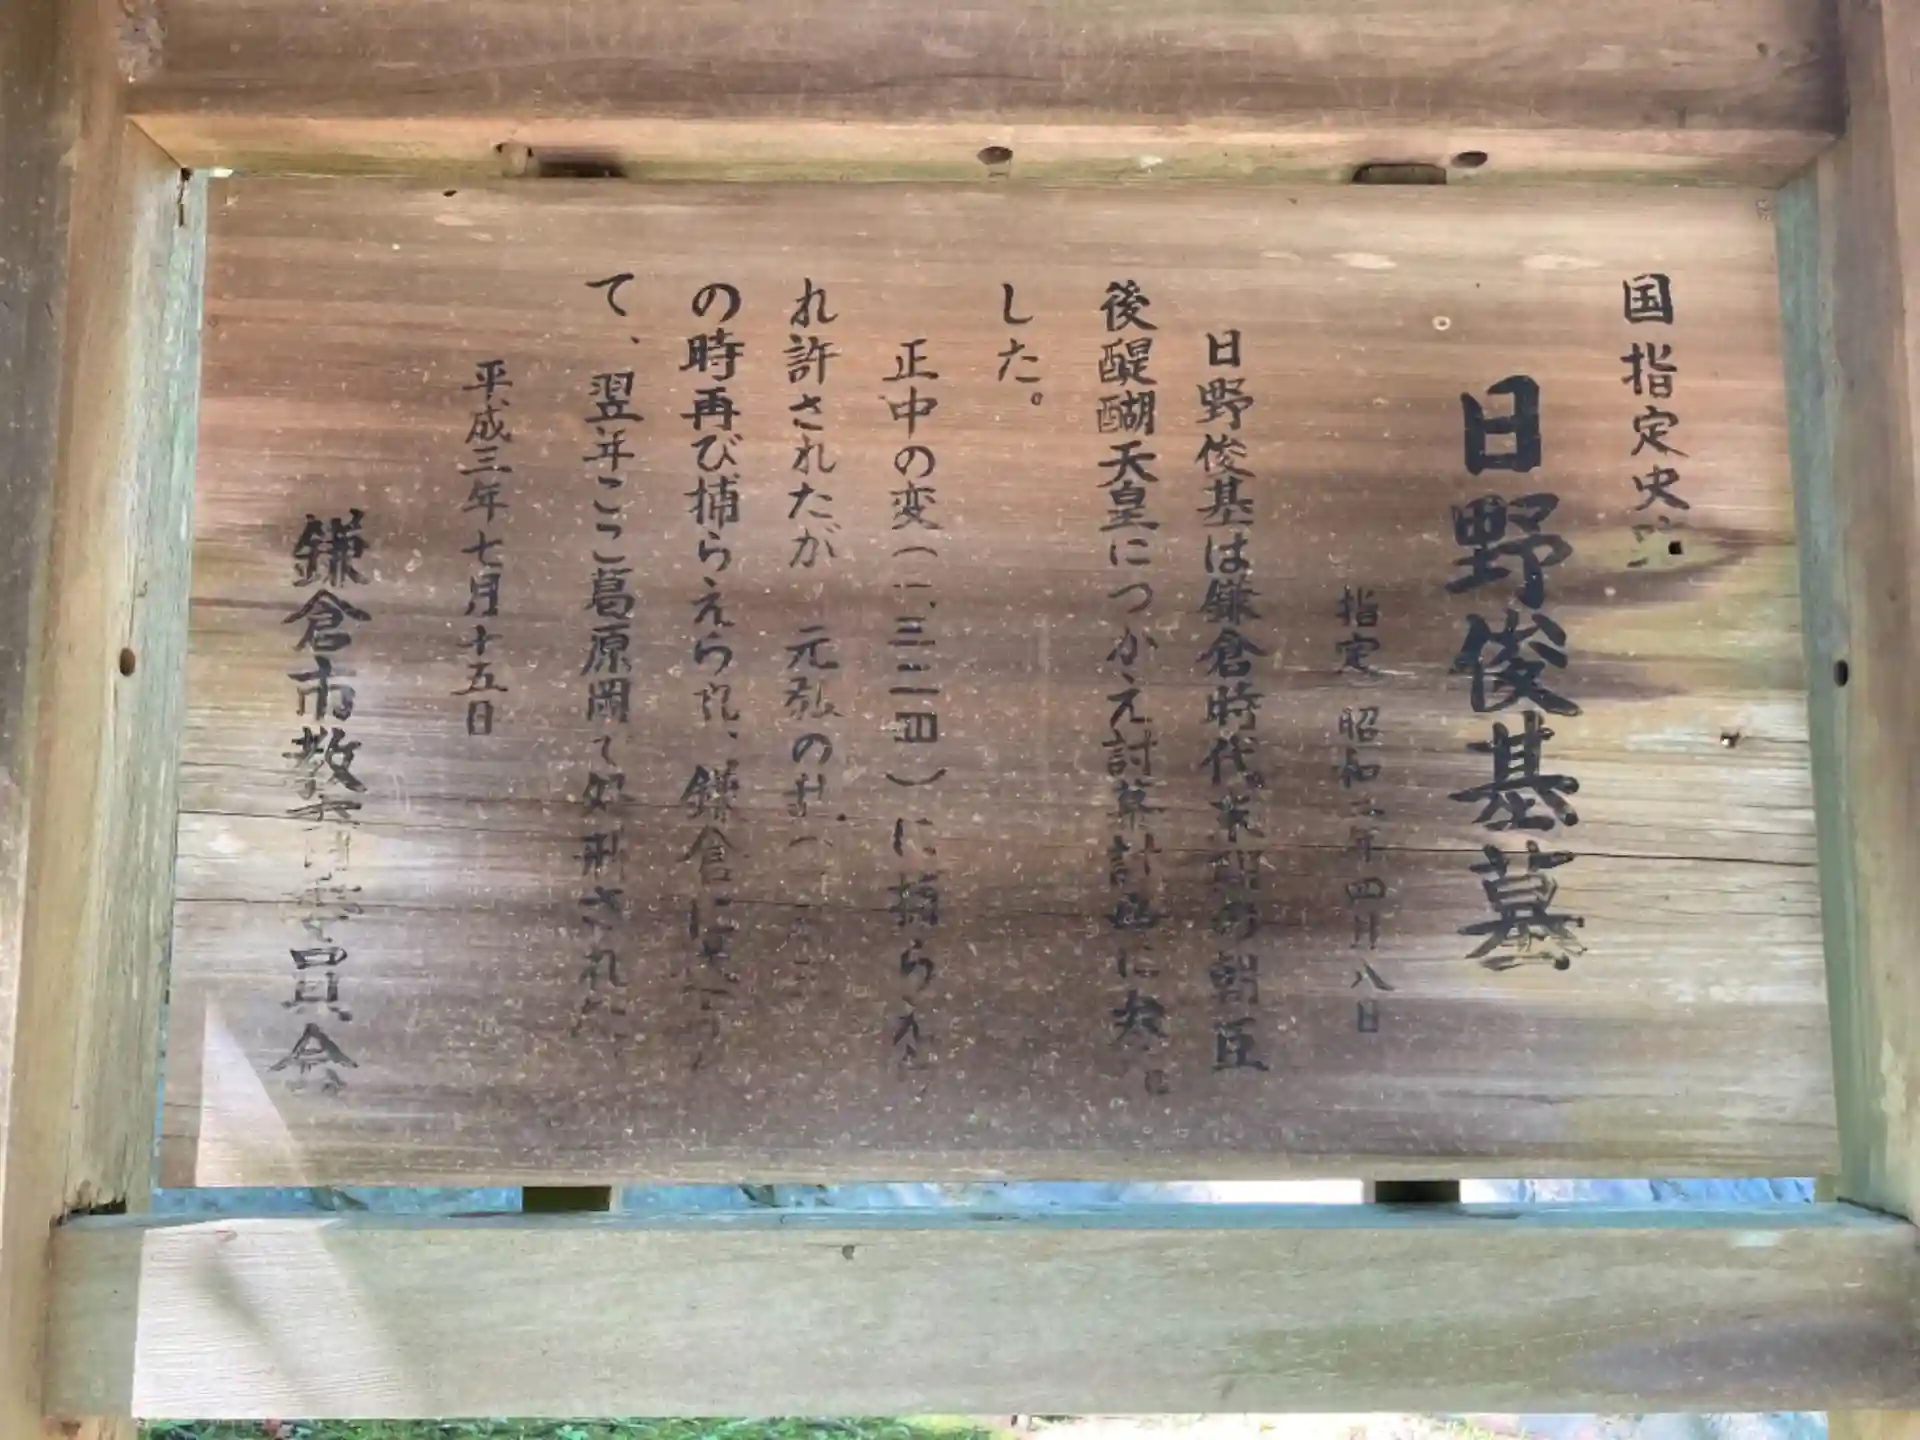 国指定史跡
日野俊基墓
指定 昭和二年四月八日
日野俊基は鎌倉時代末期の朝臣
後醍醐天皇につかえ討幕計画に
した。
正中の変(一三二四)に捕らえら
れ許されたが 元弘の乱
の時再び捕らえられ、鎌倉に
て、翌年ここ葛原岡で処刑された
平成三年七月十五日
鎌倉市教育委員会